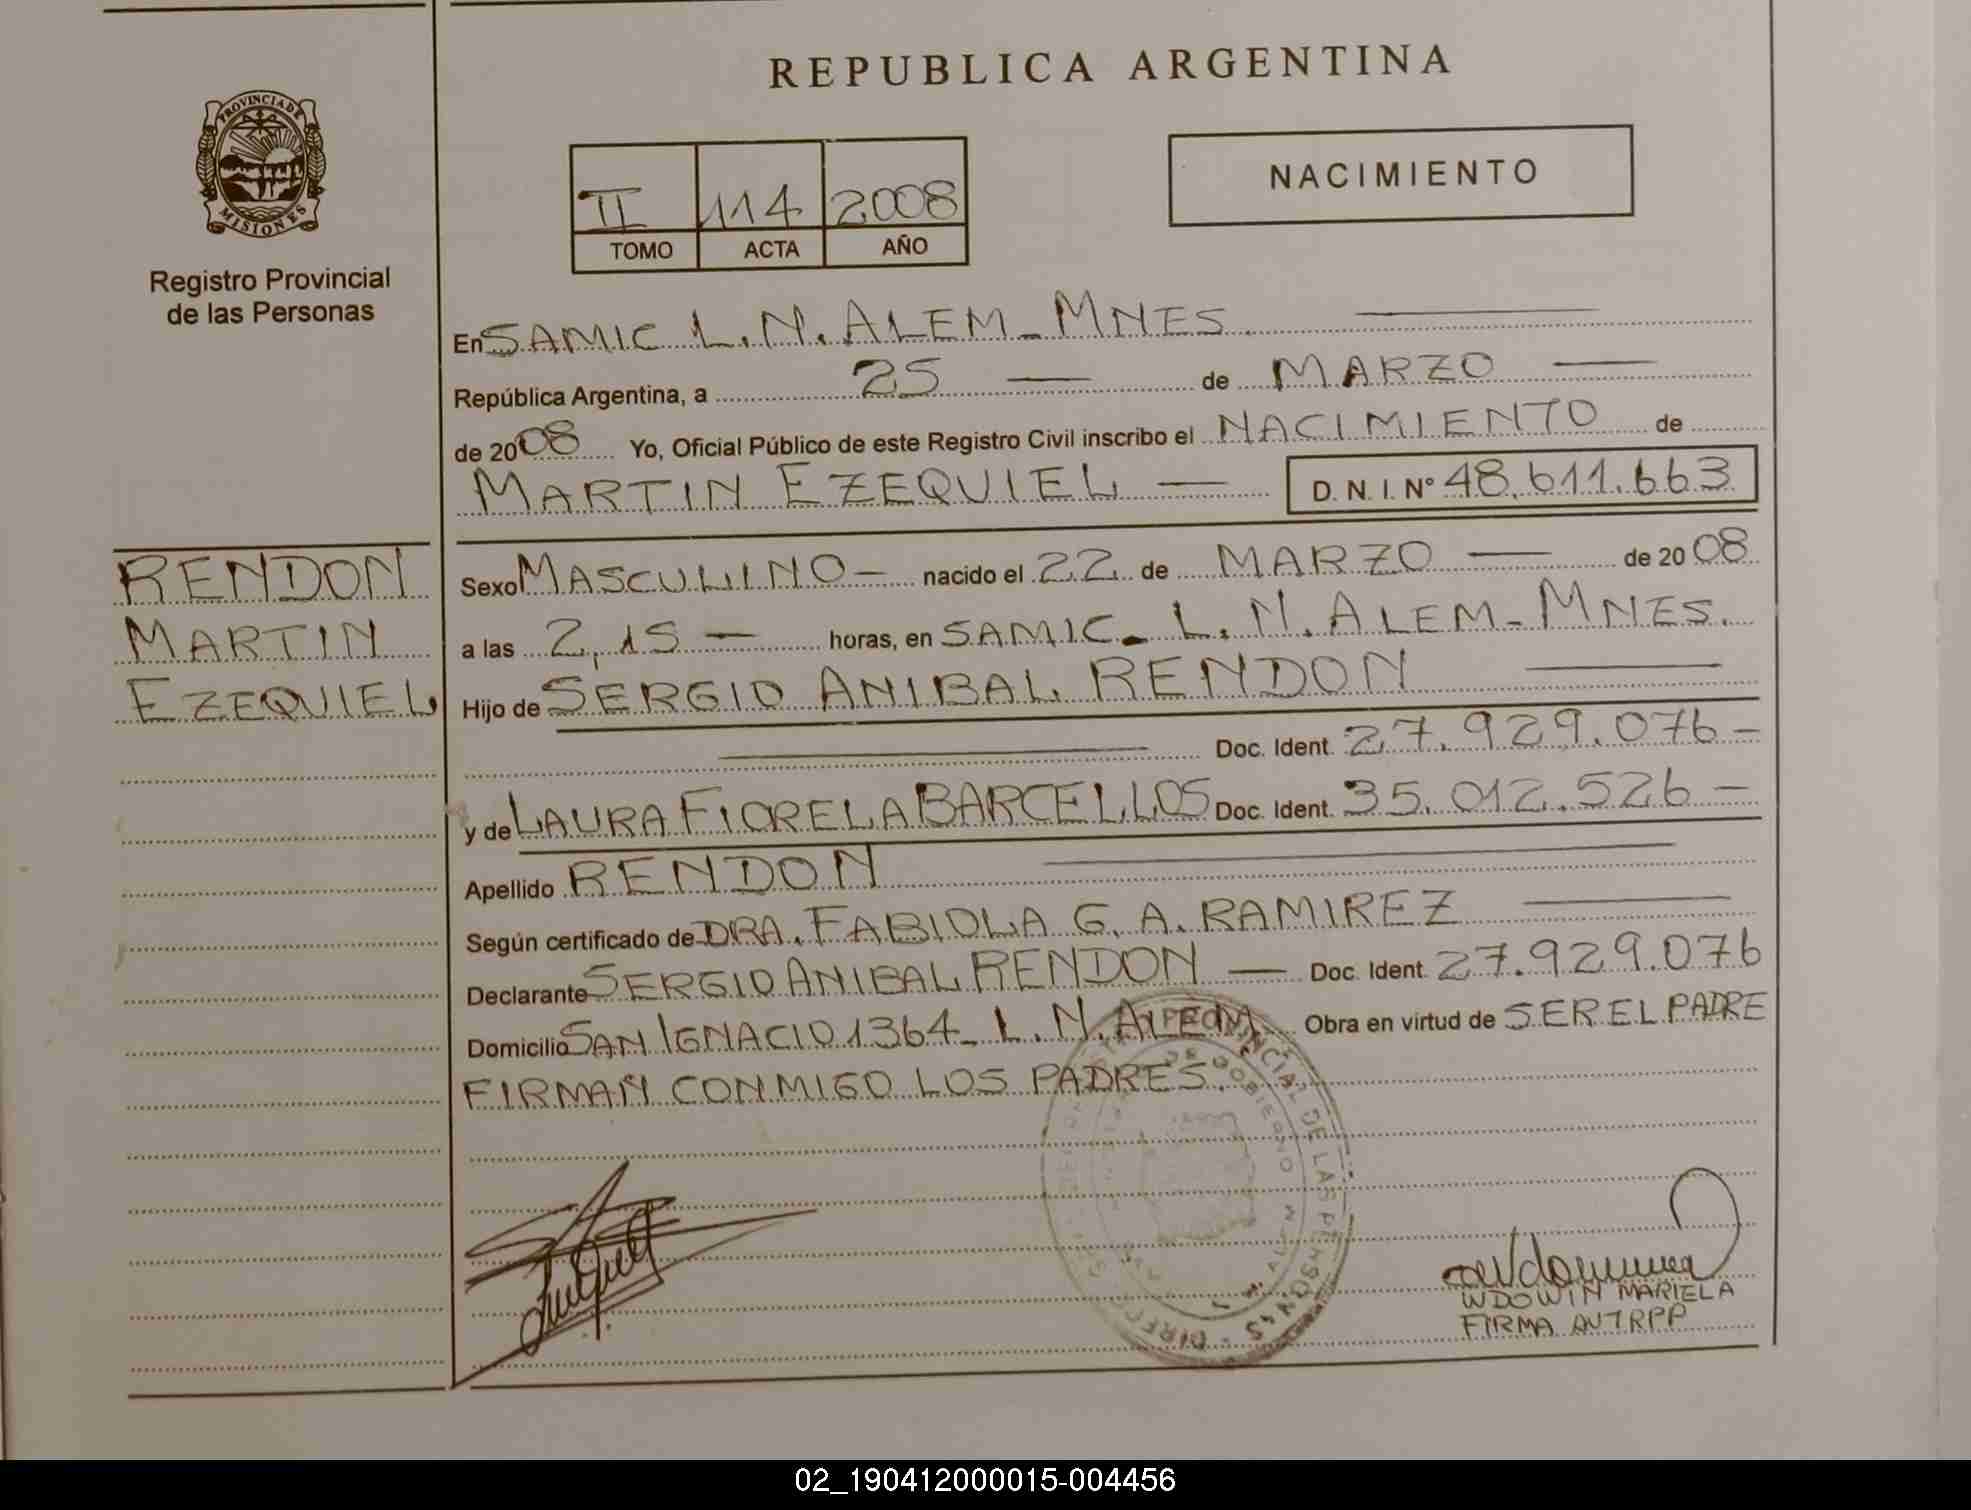 REPUBLICA ARGENTINA
PROVINCIA DE
MISIONES
Registro Provincial
de las Personas
NACIMIENTO
II 114 2008
TOMO ACTA AÑO
En SAMIC L.N. ALEM - MNES.
República Argentina, a 25 de MARZO
de 2008 Yo, Oficial Público de este Registro Civil inscribo el NACIMIENTO de
MARTIN EZEQUIEL D.N.I. N° 48.611.663
RENDON
MARTIN
EZEQUIEL
Sexo MASCULINO - nacido el 22 de MARZO de 2008
a las 2,15 horas, en SAMIC. L.N. ALEM - MNES.
Hijo de SERGIO ANIBAL RENDON
Doc. Ident. 27.929.076 -
y de LAURA FIORELA BARCELLOS Doc. Ident. 35.012.526 -
Apellido RENDON
Según certificado de DRA. FABIOLA G. A. RAMIREZ
Declarante SERGIO ANIBAL RENDON Doc. Ident. 27.929.076
Domicilio SAN IGNACIO 1364 - L.N. ALEM Obra en virtud de SER EL PADRE
FIRMAN CONMIGO LOS PADRES.
PROVINCIAL DE LAS PERSONAS
WDOWIN MARIELA
FIRMA AUT RPP
02_190412000015-004456